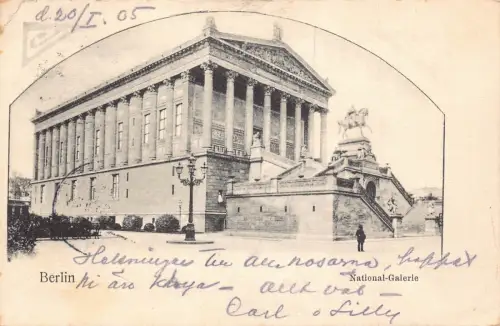 d. 20/I. 05
Berlin
National-Galerie
Helsningar för alla rosorna, hoppas
Ni äro krya – Allt väl
Carl o Lilly